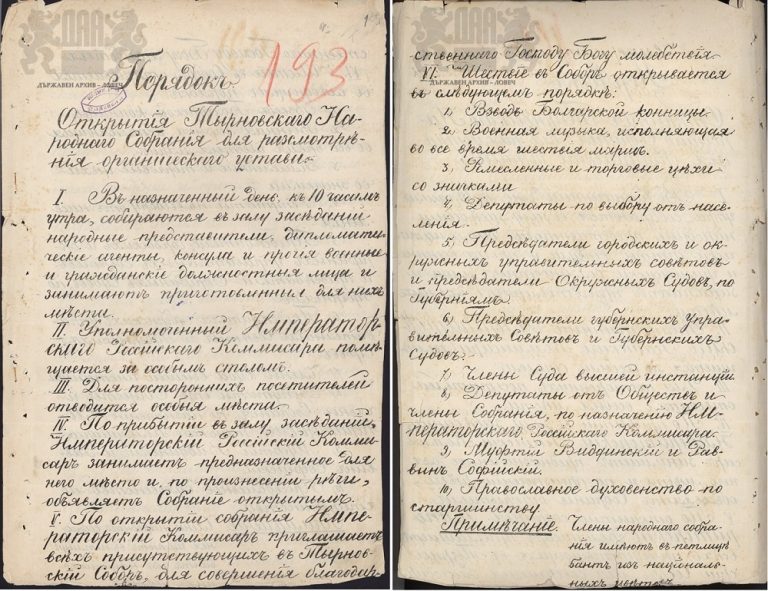 ДАА
193
Порядокъ
ДЪРЖАВЕН АРХИВ – ЛОВЕЧ
Открытія Тырновскаго На-
роднаго Собранія для разсмотрѣ-
нія органическаго устава.
I. Въ назначенный день, къ 10 часамъ
утра, собираются въ залу засѣданій
народные представители, дипломати-
ческіе агенты, консула и прочія военные
и гражданскія должностныя лица и
занимаютъ приготовленныя для нихъ
мѣста.
II. Уполномоченный Император-
скаго Россійскаго Коммисара помѣ-
щается за особымъ столомъ.
III. Для постороннихъ посѣтителей
отводятся особыя мѣста.
IV. По прибытіи въ залу засѣданій,
Императорскій Россійскій Комми-
саръ занимаетъ предназначенное для
него мѣсто и, по произнесеніи рѣчи,
объявляетъ Собраніе открытымъ.
V. По открытіи собранія Импе-
раторскій Коммисаръ приглашаетъ
всѣхъ присутствующихъ въ Тырнов-
скій Соборъ, для совершенія благодар-
ДАА
ственнаго Господу Богу молебствія.
ДЪРЖАВЕН АРХИВ – ЛОВЕЧ
VI. Шествіе въ Соборъ открывается
въ слѣдующемъ порядкѣ:
1) Взводъ Болгарской конницы.
2. Военная музыка, исполняющая
во все время шествія маршъ.
3) Ремесленные и торговые цѣхи
со значками
4) Депутаты по выбору отъ насе-
ленія.
5) Предсѣдатели городскихъ и ок-
ружныхъ управительныхъ совѣтовъ
и предсѣдатели Окружныхъ Судовъ, по
Губерніямъ.
6) Предсѣдатели губернскихъ Упра-
вительныхъ Совѣтовъ и Губернскихъ
Судовъ.
7) Члены Суда высшей инстанціи.
8) Депутаты отъ Обществъ и
члены Собранія, по назначенію Им-
ператорскаго Россійскаго Коммисара
9) Муфтій Виддинскій и Рав-
винъ Софійскій.
10) Православное духовенство по
старшинству.
Примѣчаніе. Члены народнаго собра-
нія имѣютъ въ петлицѣ
бантъ изъ національ-
ныхъ цвѣтовъ.